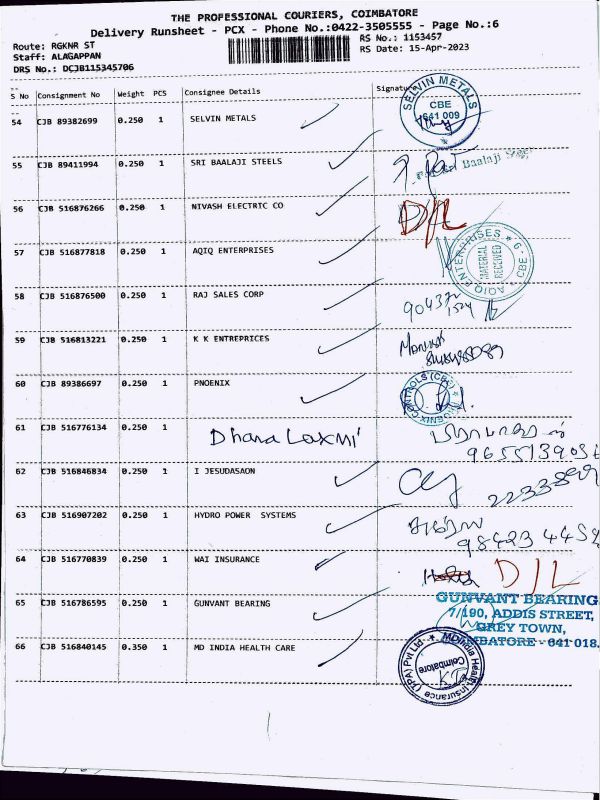 THE PROFESSIONAL COURIERS, COIMBATORE
Delivery Runsheet - PCX - Phone No.:0422-3505555 - Page No.:6
Route: RGKNR ST RS No.: 1153457
Staff: ALAGAPPAN RS Date: 15-Apr-2023
DRS No.: DCJB115345706
S No Consignment No Weight PCS Consignee Details Signature
54 CJB 89382699 0.250 1 SELVIN METALS SELVIN METALS CBE 641 009
55 CJB 89411994 0.250 1 SRI BAALAJI STEELS Baalaji
56 CJB 516876266 0.250 1 NIVASH ELECTRIC CO D/L
57 CJB 516877818 0.250 1 AQIQ ENTERPRISES AQIQ ENTERPRISES * G - CBE * MATERIAL RECEIVED
58 CJB 516876500 0.250 1 RAJ SALES CORP
59 CJB 516813221 0.250 1 K K ENTREPRICES
60 CJB 89386697 0.250 1 PNOENIX PHOENIX CONTROLS (CBE)
61 CJB 516776134 0.250 1 Dhana Laxmi
62 CJB 516846834 0.250 1 I JESUDASAON
63 CJB 516907202 0.250 1 HYDRO POWER SYSTEMS
64 CJB 516770839 0.250 1 WAI INSURANCE D/L
65 CJB 516786595 0.250 1 GUNVANT BEARING GUNVANT BEARING
7/190, ADDIS STREET,
GREY TOWN,
COIMBATORE - 641 018.
66 CJB 516840145 0.350 1 MD INDIA HEALTH CARE MDIndia Health Insurance (TPA) Pvt Ltd * Coimbatore